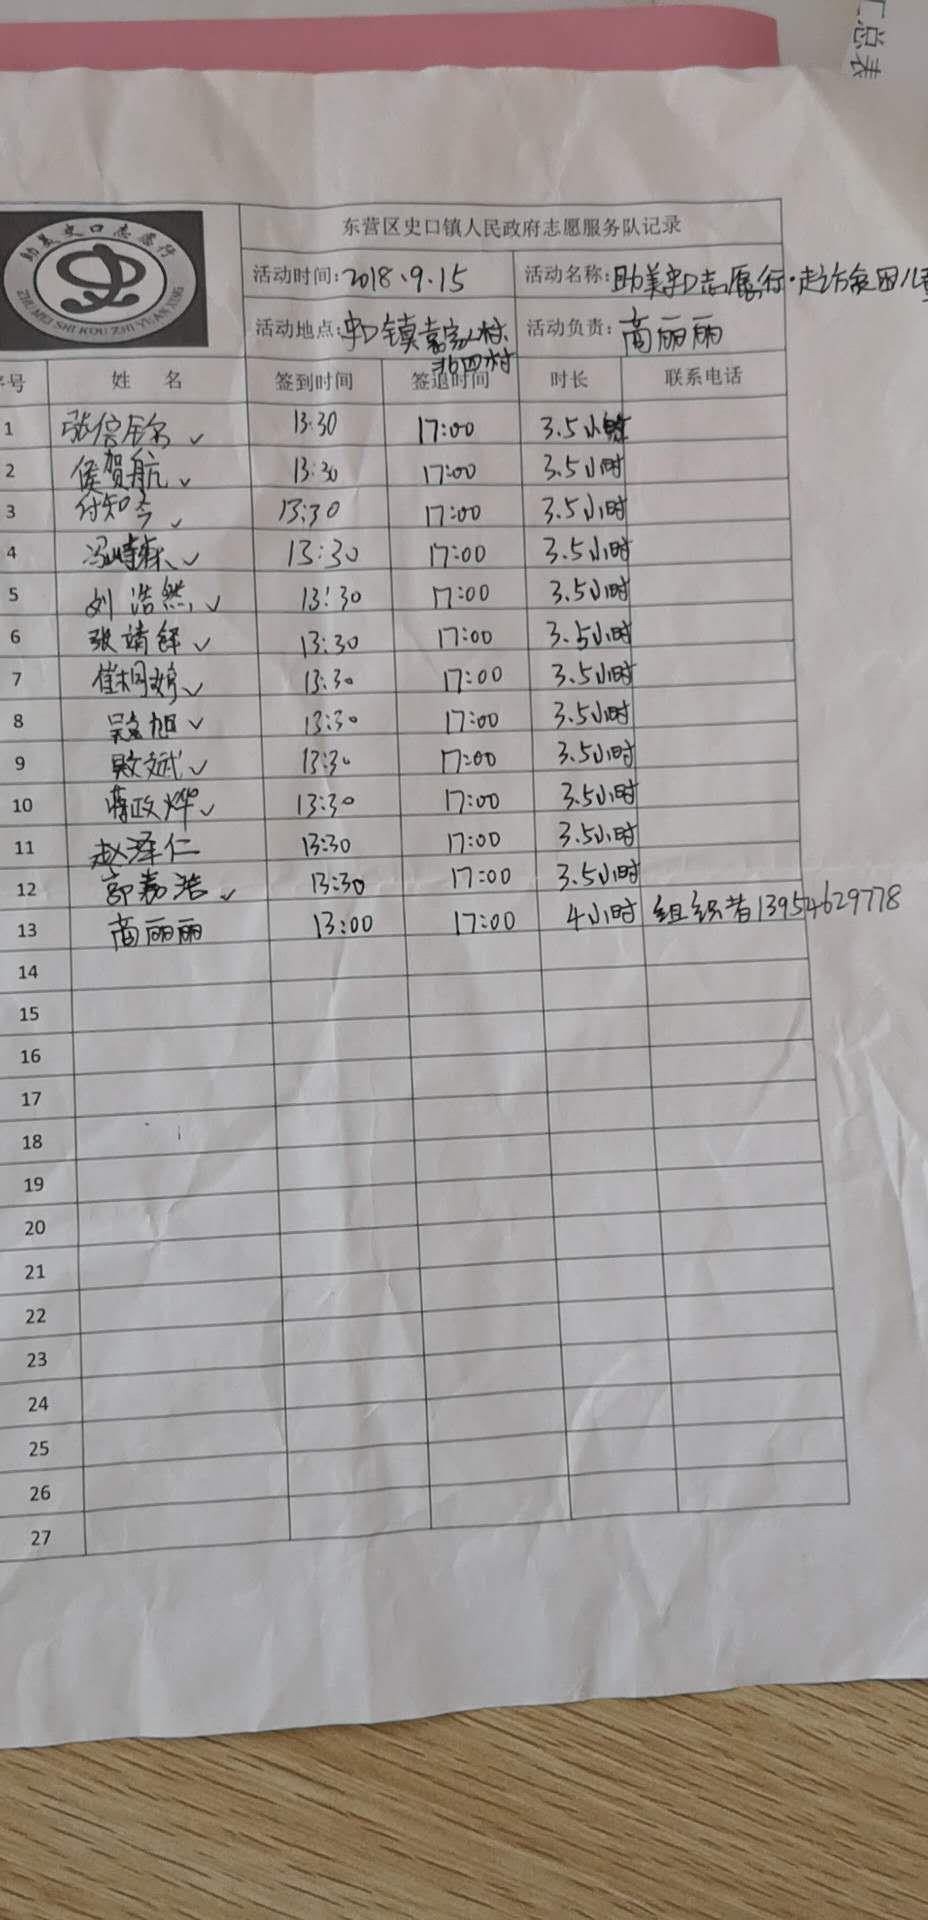 汇总表
助美史口志愿行
ZHU MEI SHI KOU ZHI YUAN XING
东营区史口镇人民政府志愿服务队记录
活动时间:2018.9.15 活动名称:助美史口志愿行·走访贫困儿童
活动地点:史口镇 村、北四村 活动负责:商丽丽
序号 姓 名 签到时间 签退时间 时长 联系电话
1 张信 ✓ 13:30 17:00 3.5小时
2 侯贺航 ✓ 13:30 17:00 3.5小时
3 付知今 ✓ 13:30 17:00 3.5小时
4 冯 森 ✓ 13:30 17:00 3.5小时
5 刘浩然 ✓ 13:30 17:00 3.5小时
6 张靖铎 ✓ 13:30 17:00 3.5小时
7 崔桐 ✓ 13:30 17:00 3.5小时
8 旭 ✓ 13:30 17:00 3.5小时
9 斌 ✓ 13:30 17:00 3.5小时
10 蒋政烨 ✓ 13:30 17:00 3.5小时
11 赵泽仁 13:30 17:00 3.5小时
12 郭嘉浩 ✓ 13:30 17:00 3.5小时
13 商丽丽 13:00 17:00 4小时 组织者13954629778
14
15
16
17
18
19
20
21
22
23
24
25
26
27